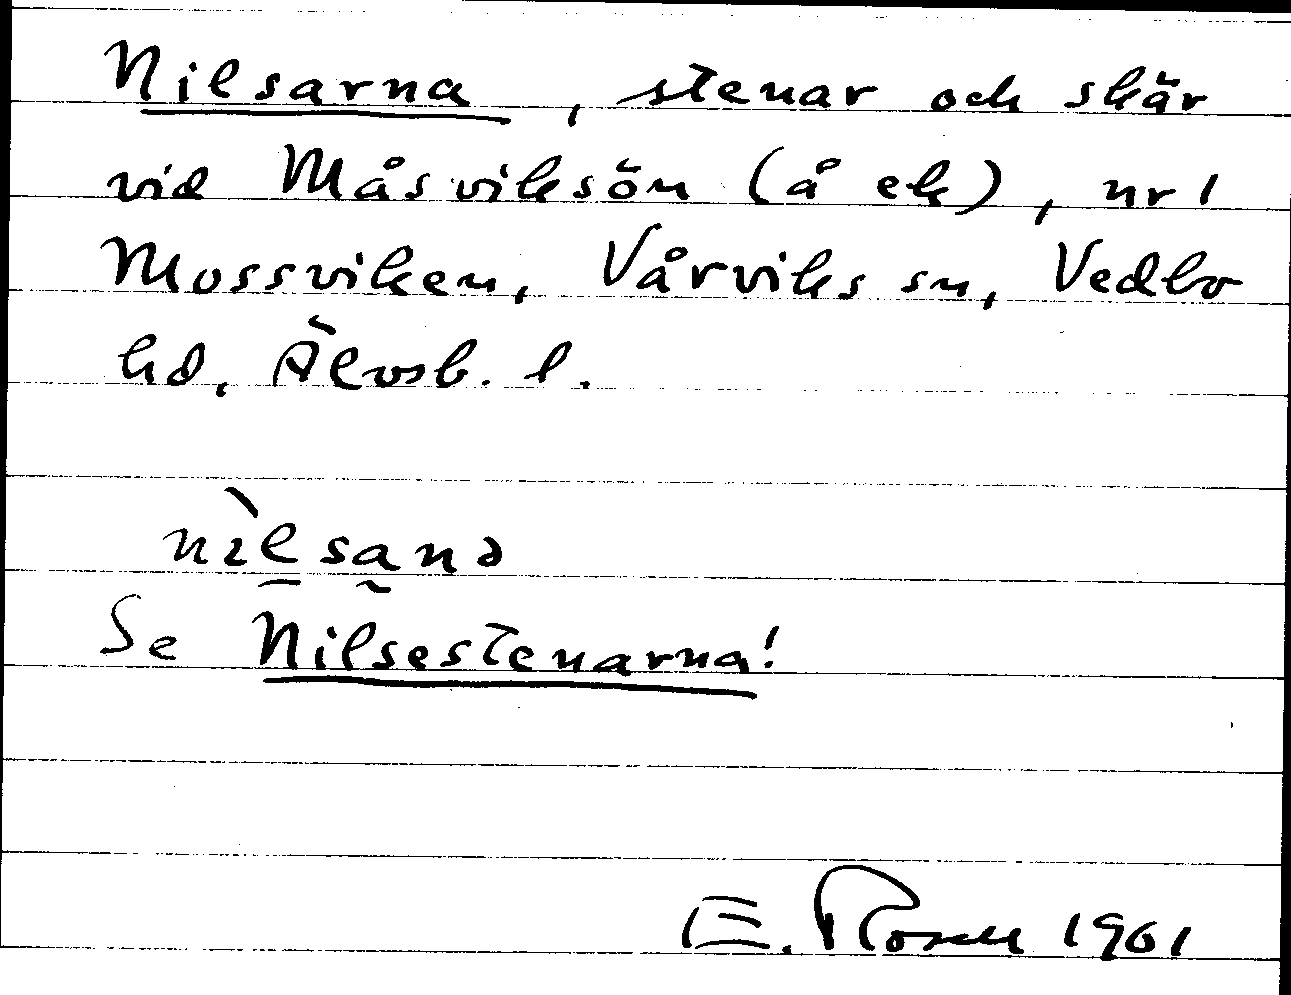 Nilsarna, stenar och skär
vid Måsviksön (å ek), nr 1
Mossviken, Vårviks sn, Vedbo
hd, Älvsb. l.
nìlsanə
Se Nilsestenarna!
E. Rosell 1961